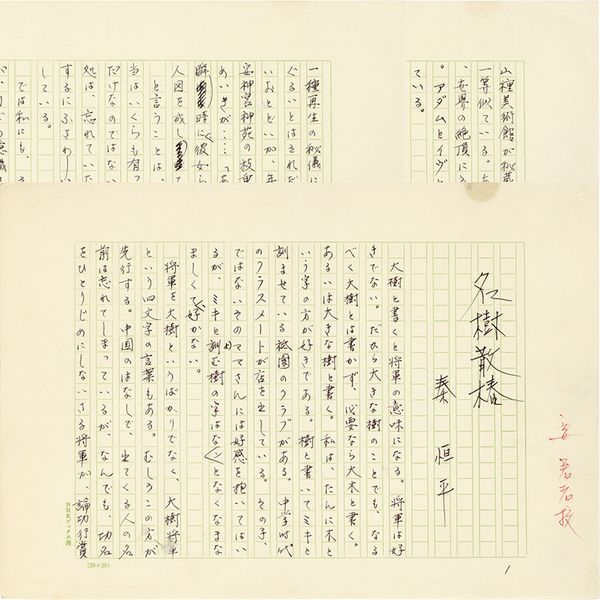 山種美術館が秘蔵
一等似ている。
、世界の絶頂に
。アダムとイヴと
ている。
一種再生の秘儀に
ぐるいとはされだ
いおとどいか、年
安神宮神苑の枝垂
あいさが……
瞬 時に彼女ら
人図を成し
と言うことは、
当はいくらも有っ
だけなのではない
処は、忘れていた
するにふさわし
している。
では私にも、
名樹散椿
秦恒平
大樹と書くと将軍の意味になる。将軍は好
きでない。だから大きな樹のことでも、なる
べく大樹とは書かず、必要なら大木と書く。
あるいは大きな樹と書く。私は、たんに木と
いう字の方が好きである。樹と書いてミキと
訓ませている祇園のクラブがある。中学時代
のクラスメートが店を出している。その子、
ではないそのママさんには好感を抱いてはい
るが、ミキと訓む樹の字はなんとなくなまな
ましくて好かない。
将軍を大樹というばかりでなく、大樹将軍
という四文字の言葉もある。むしろこの方が
先行する。中国のはなしで、出てくる人の名
前は忘れてしまっているが、なんでも、功名
をひとりじめにしないさる将軍が、論功行賞
要著者校
NHKブックス用
(20×20)
1